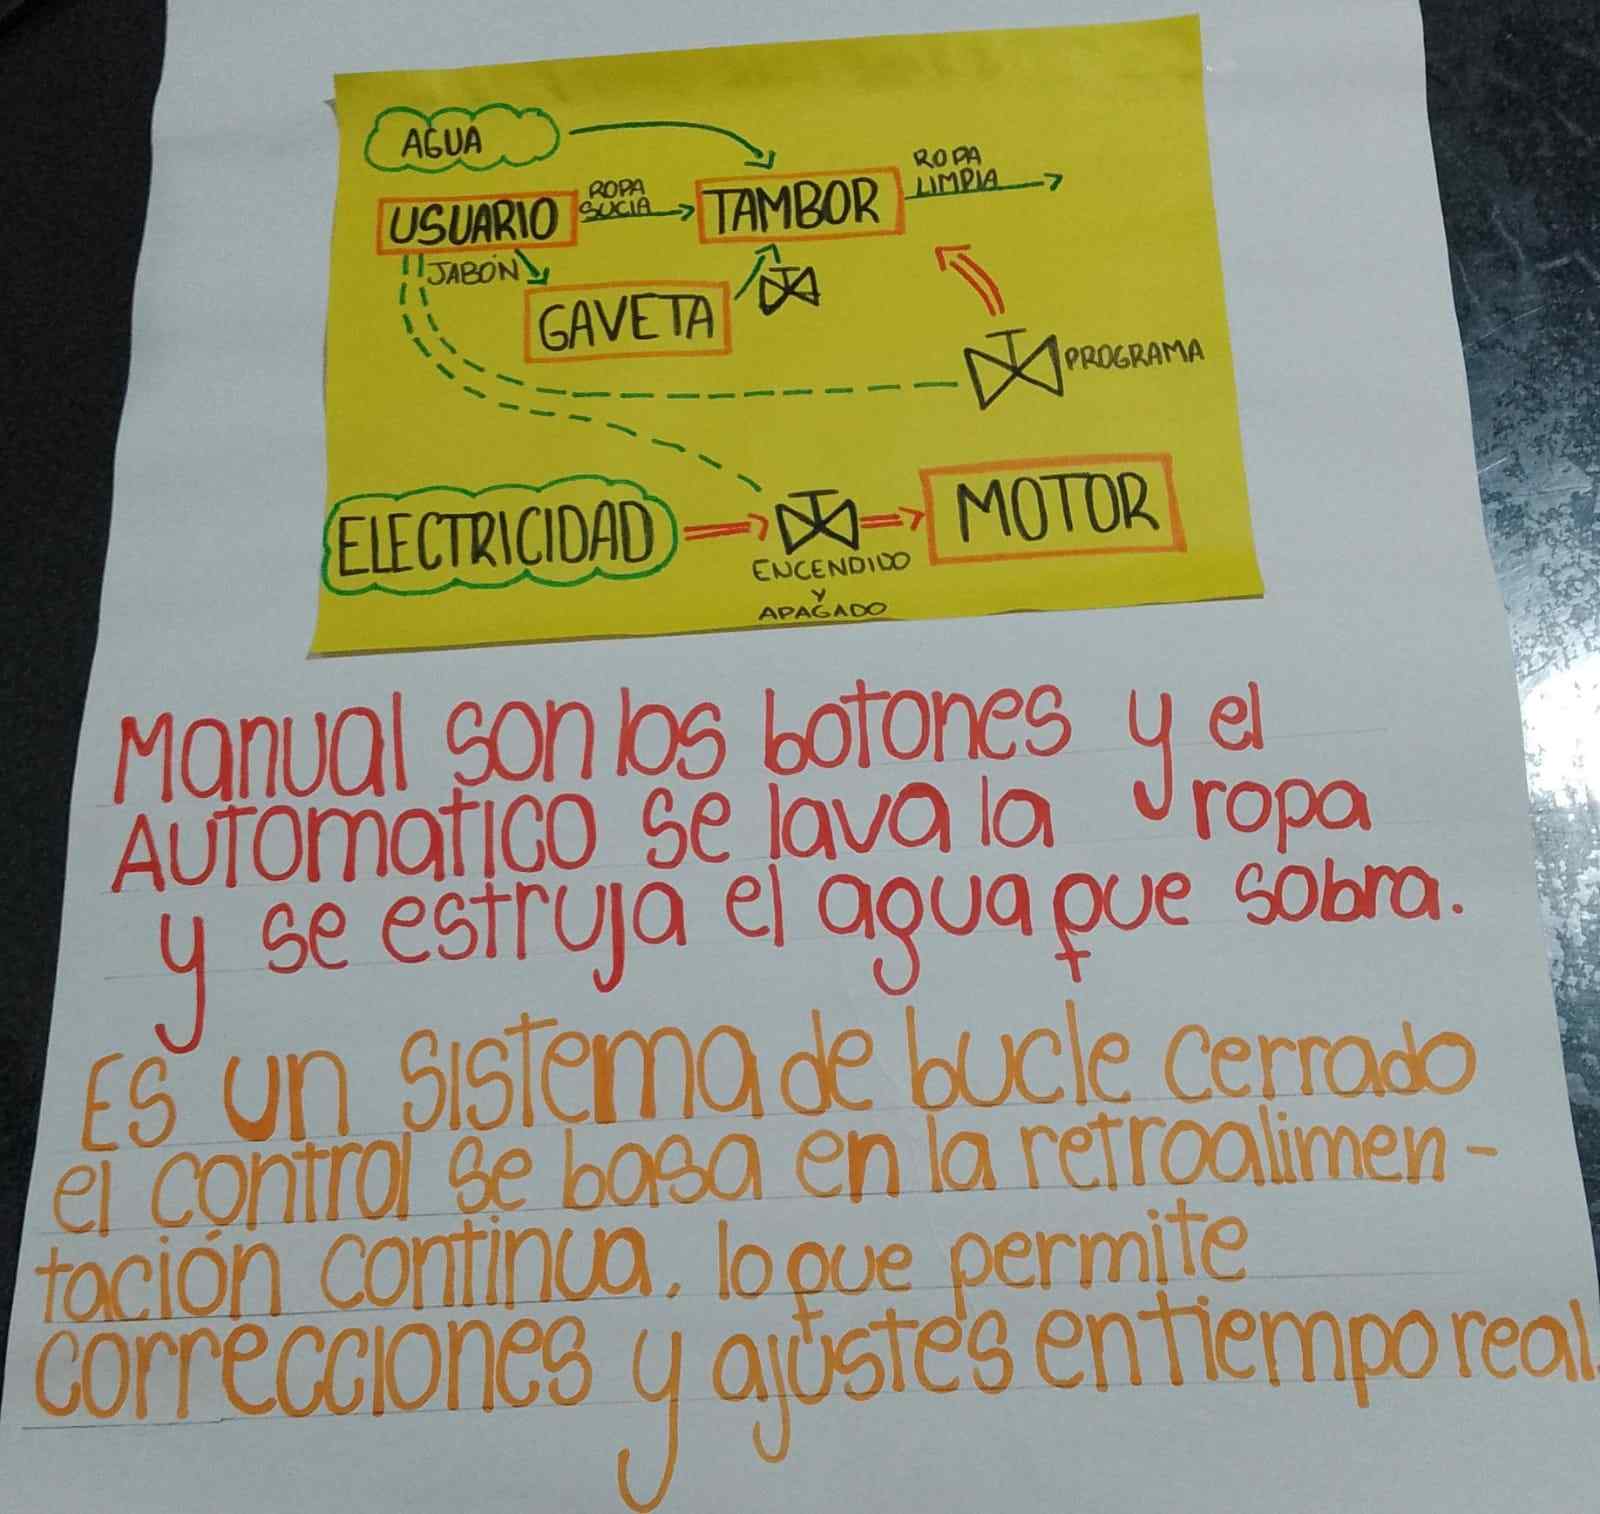 AGUA
ROPA
SUCIA
ROPA
LIMPIA
USUARIO
TAMBOR
JABÓN
GAVETA
PROGRAMA
ELECTRICIDAD
MOTOR
ENCENDIDO
Y
APAGADO
Manual son los botones y el
AUTOMATICO se lava la ropa
y se estruja el agua que sobra.
Es un sistema de bucle cerrado
el control se basa en la retroalimen-
tación continua. lo que permite
correcciones y ajustes en tiempo real.